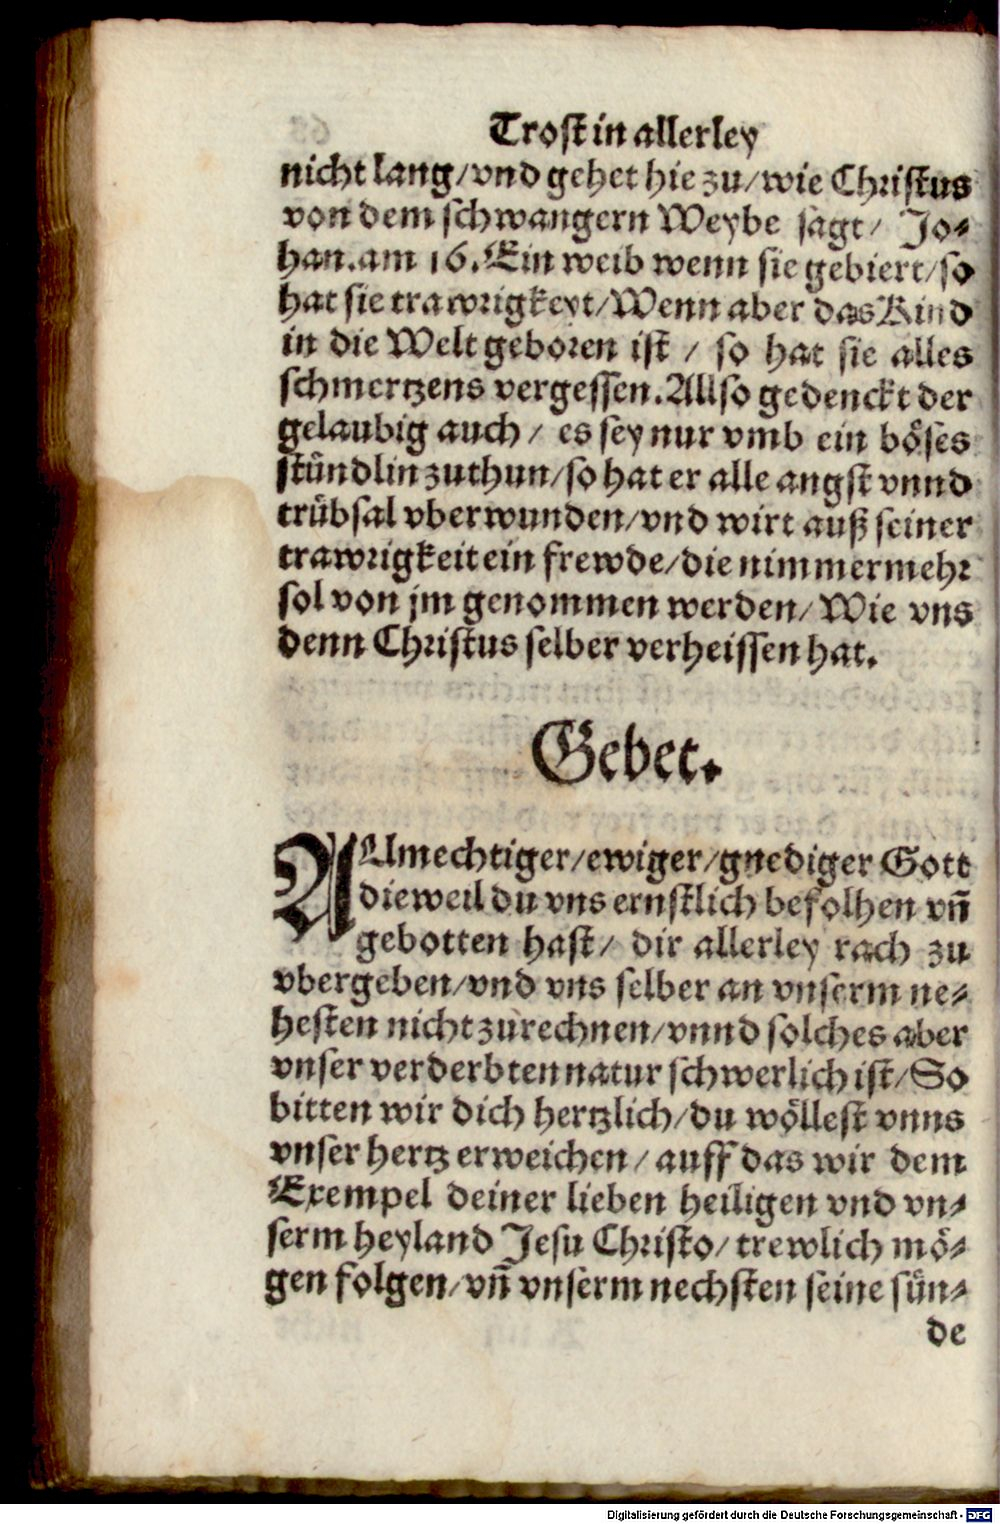 Trost in allerley
nicht lang/vnd gehet hie zu/wie Christus
von dem schwangern Weybe sagt/ Jo-
han.am 16.Ein weib wenn sie gebiert/so
hat sie trawrigkeyt/Wenn aber das Kind
in die Welt geboren ist / so hat sie alles
schmertzens vergessen.Allso gedenckt der
gelaubig auch/ es sey nur vmb ein böses
stündlin zuthun/so hat er alle angst vnnd
trübsal vberwunden/vnd wirt auß seiner
trawrigkeit ein frewde/die nimmermehr
sol von jm genommen werden/ Wie vns
denn Christus selber verheissen hat.
Gebet.
ALlmechtiger/ewiger/gnediger Gott
dieweil du vns ernstlich befolhen vñ
gebotten hast/ dir allerley rach zu
vbergeben/vnd vns selber an vnserm ne-
hesten nicht zurechnen/vnnd solches aber
vnser verderbten natur schwerlich ist/So
bitten wir dich hertzlich/du wöllest vnns
vnser hertz erweichen/ auff das wir dem
Exempel deiner lieben heiligen vnd vn-
serm heyland Jesu Christo/trewlich mö-
gen folgen/vñ vnserm nechsten seine sün-
de
Digitalisierung gefördert durch die Deutsche Forschungsgemeinschaft - DFG